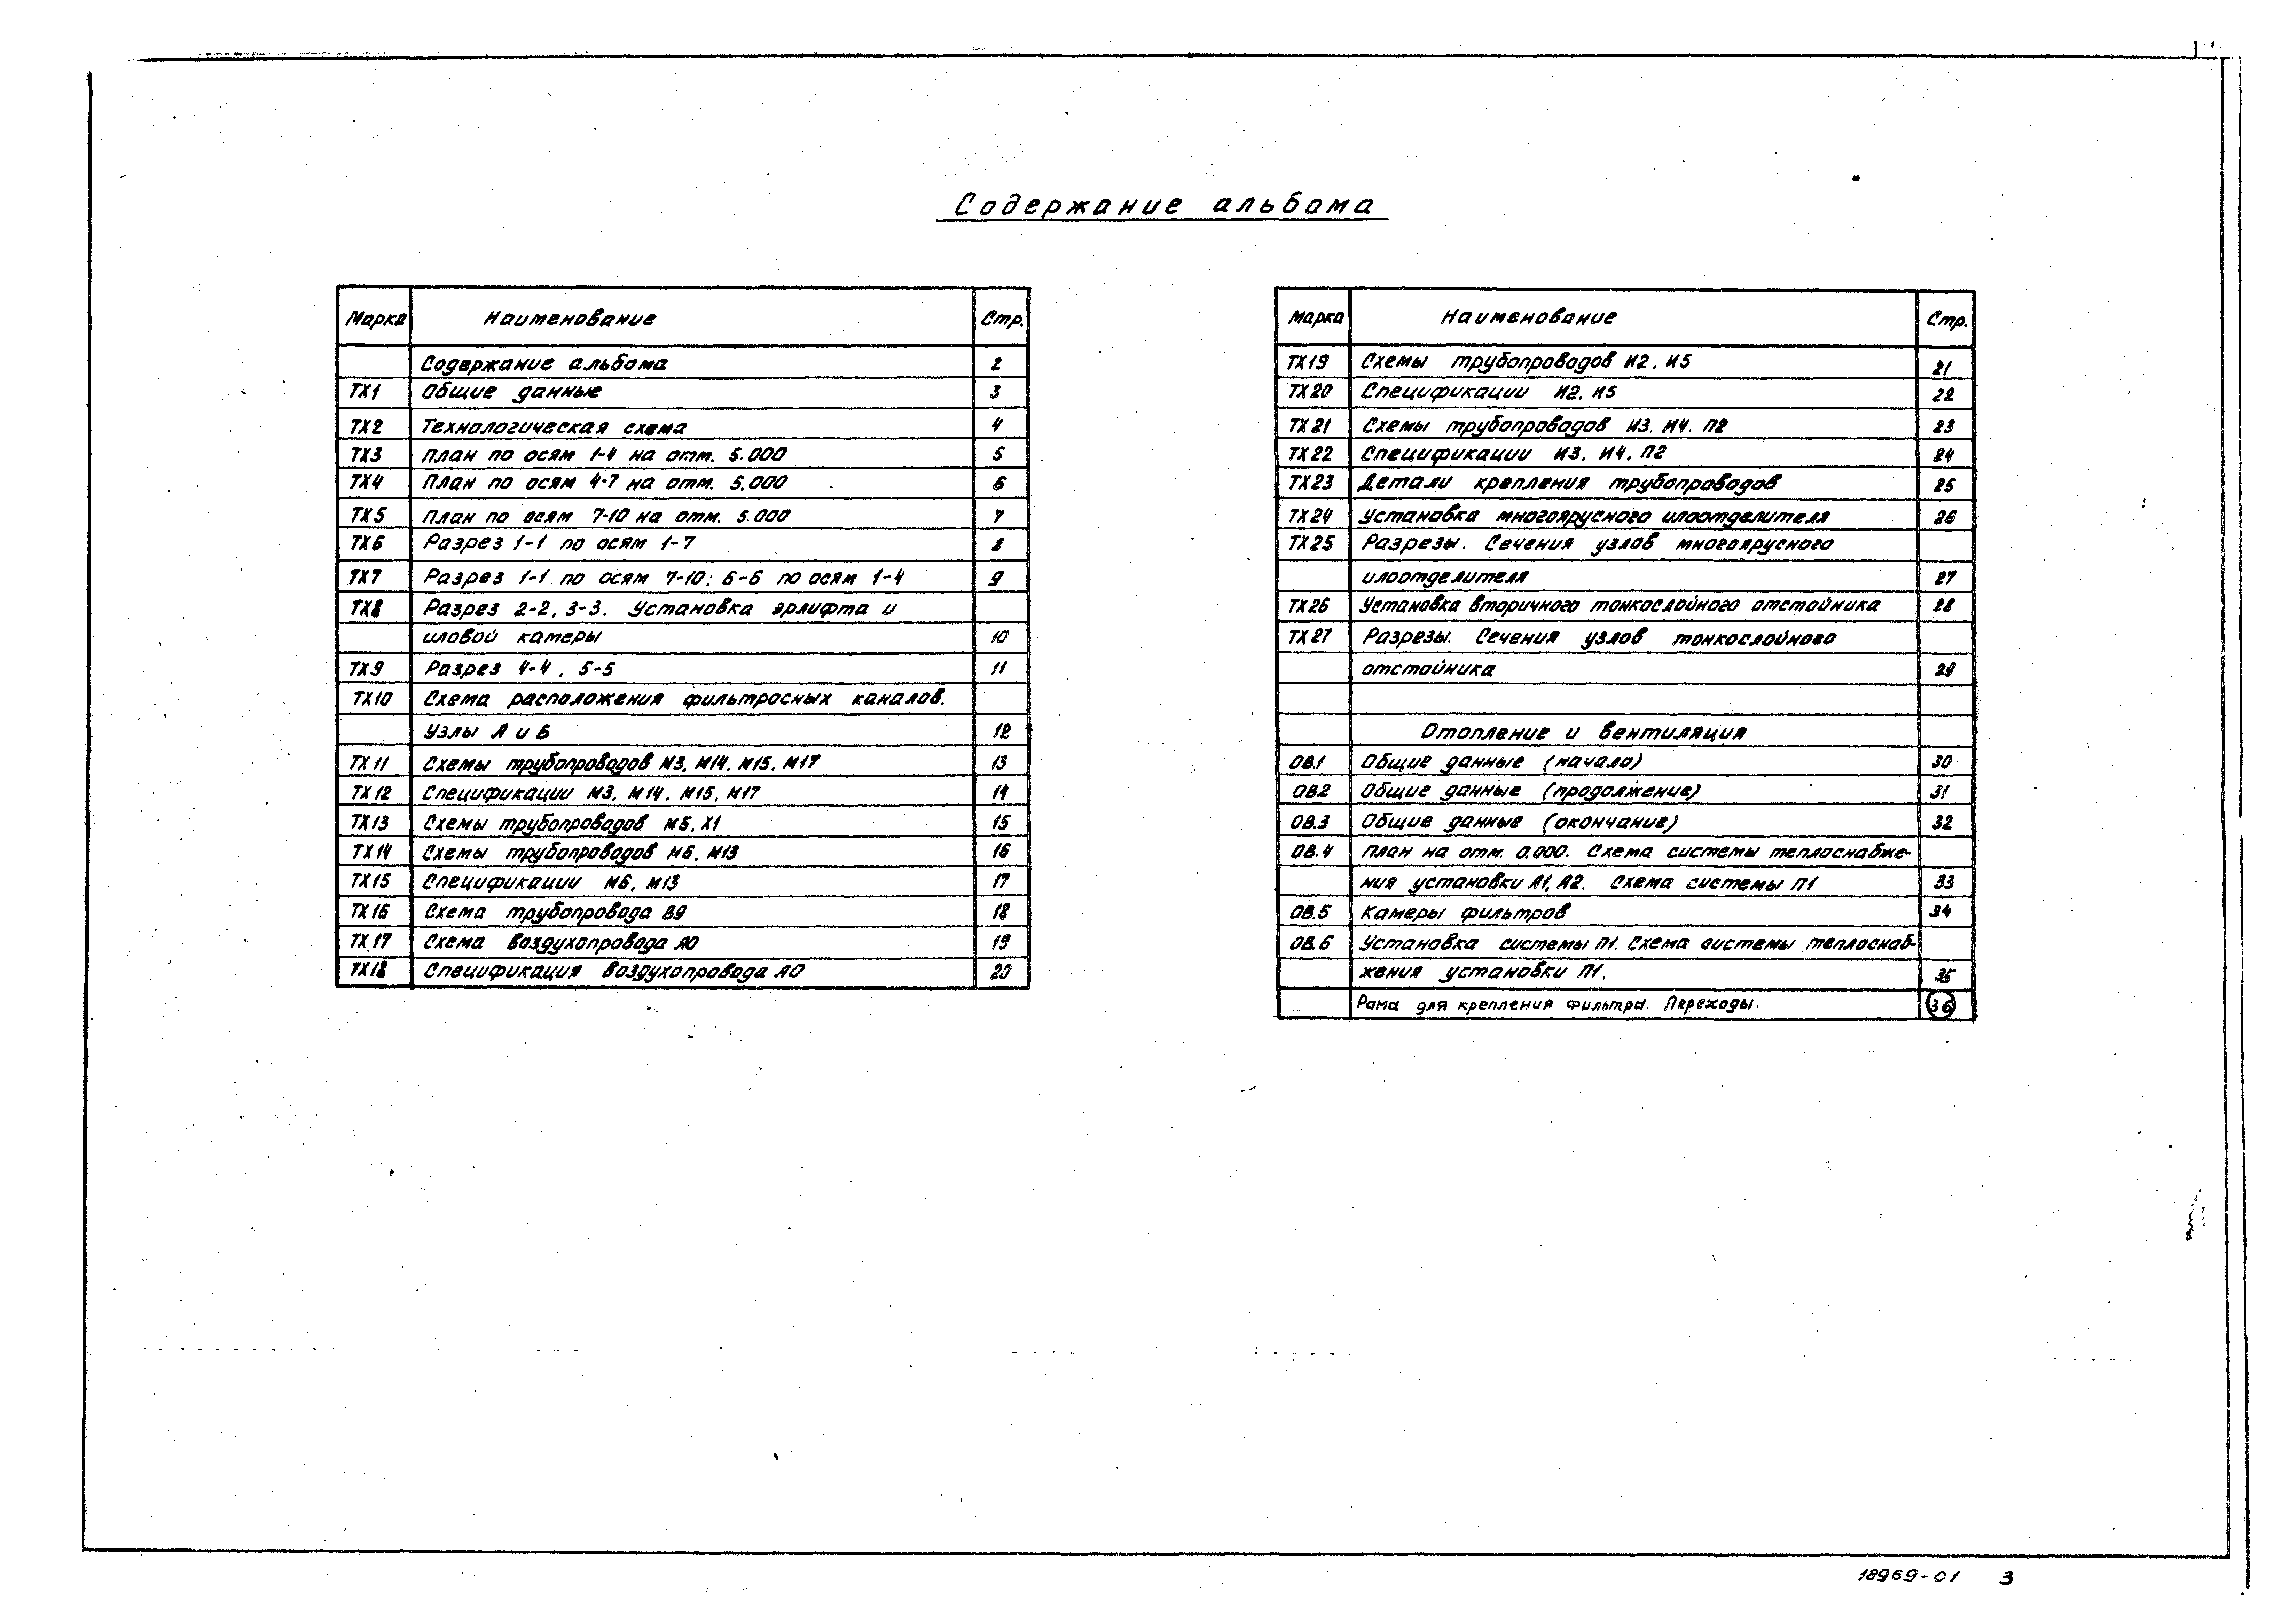 Содержание альбома
Марка Наименование Стр.
Содержание альбома 2
ТХ1 Общие данные 3
ТХ2 Технологическая схема 4
ТХ3 План по осям 1-4 на отм. 5.000 5
ТХ4 План по осям 4-7 на отм. 5.000 6
ТХ5 План по осям 7-10 на отм. 5.000 7
ТХ6 Разрез 1-1 по осям 1-7 8
ТХ7 Разрез 1-1 по осям 7-10; 6-6 по осям 1-4 9
ТХ8 Разрез 2-2, 3-3. Установка эрлифта и
иловой камеры 10
ТХ9 Разрез 4-4, 5-5 11
ТХ10 Схема расположения фильтросных каналов.
Узлы А и Б 12
ТХ11 Схемы трубопроводов М3, М14, М15, М17 13
ТХ12 Спецификации М3, М14, М15, М17 14
ТХ13 Схемы трубопроводов М5, Х1 15
ТХ14 Схемы трубопроводов М6, М13 16
ТХ15 Спецификации М6, М13 17
ТХ16 Схема трубопровода В9 18
ТХ17 Схема воздухопровода А0 19
ТХ18 Спецификация воздухопровода А0 20
Марка Наименование Стр.
ТХ19 Схемы трубопроводов И2, И5 21
ТХ20 Спецификации И2, И5 22
ТХ21 Схемы трубопроводов И3, И4, П2 23
ТХ22 Спецификации И3, И4, П2 24
ТХ23 Детали крепления трубопроводов 25
ТХ24 Установка многоярусного илоотделителя 26
ТХ25 Разрезы. Сечения узлов многоярусного
илоотделителя 27
ТХ26 Установка вторичного тонкослойного отстойника 28
ТХ27 Разрезы. Сечения узлов тонкослойного
отстойника 29
Отопление и вентиляция
ОВ.1 Общие данные (начало) 30
ОВ.2 Общие данные (продолжение) 31
ОВ.3 Общие данные (окончание) 32
ОВ.4 План на отм. 0.000. Схема системы теплоснабже-
ния установки А1, А2. Схема системы П1 33
ОВ.5 Камеры фильтров 34
ОВ.6 Установка системы П1. Схема системы теплоснаб-
жения установки П1. 35
Рама для крепления фильтра. Переходы. 36
18969-01 3